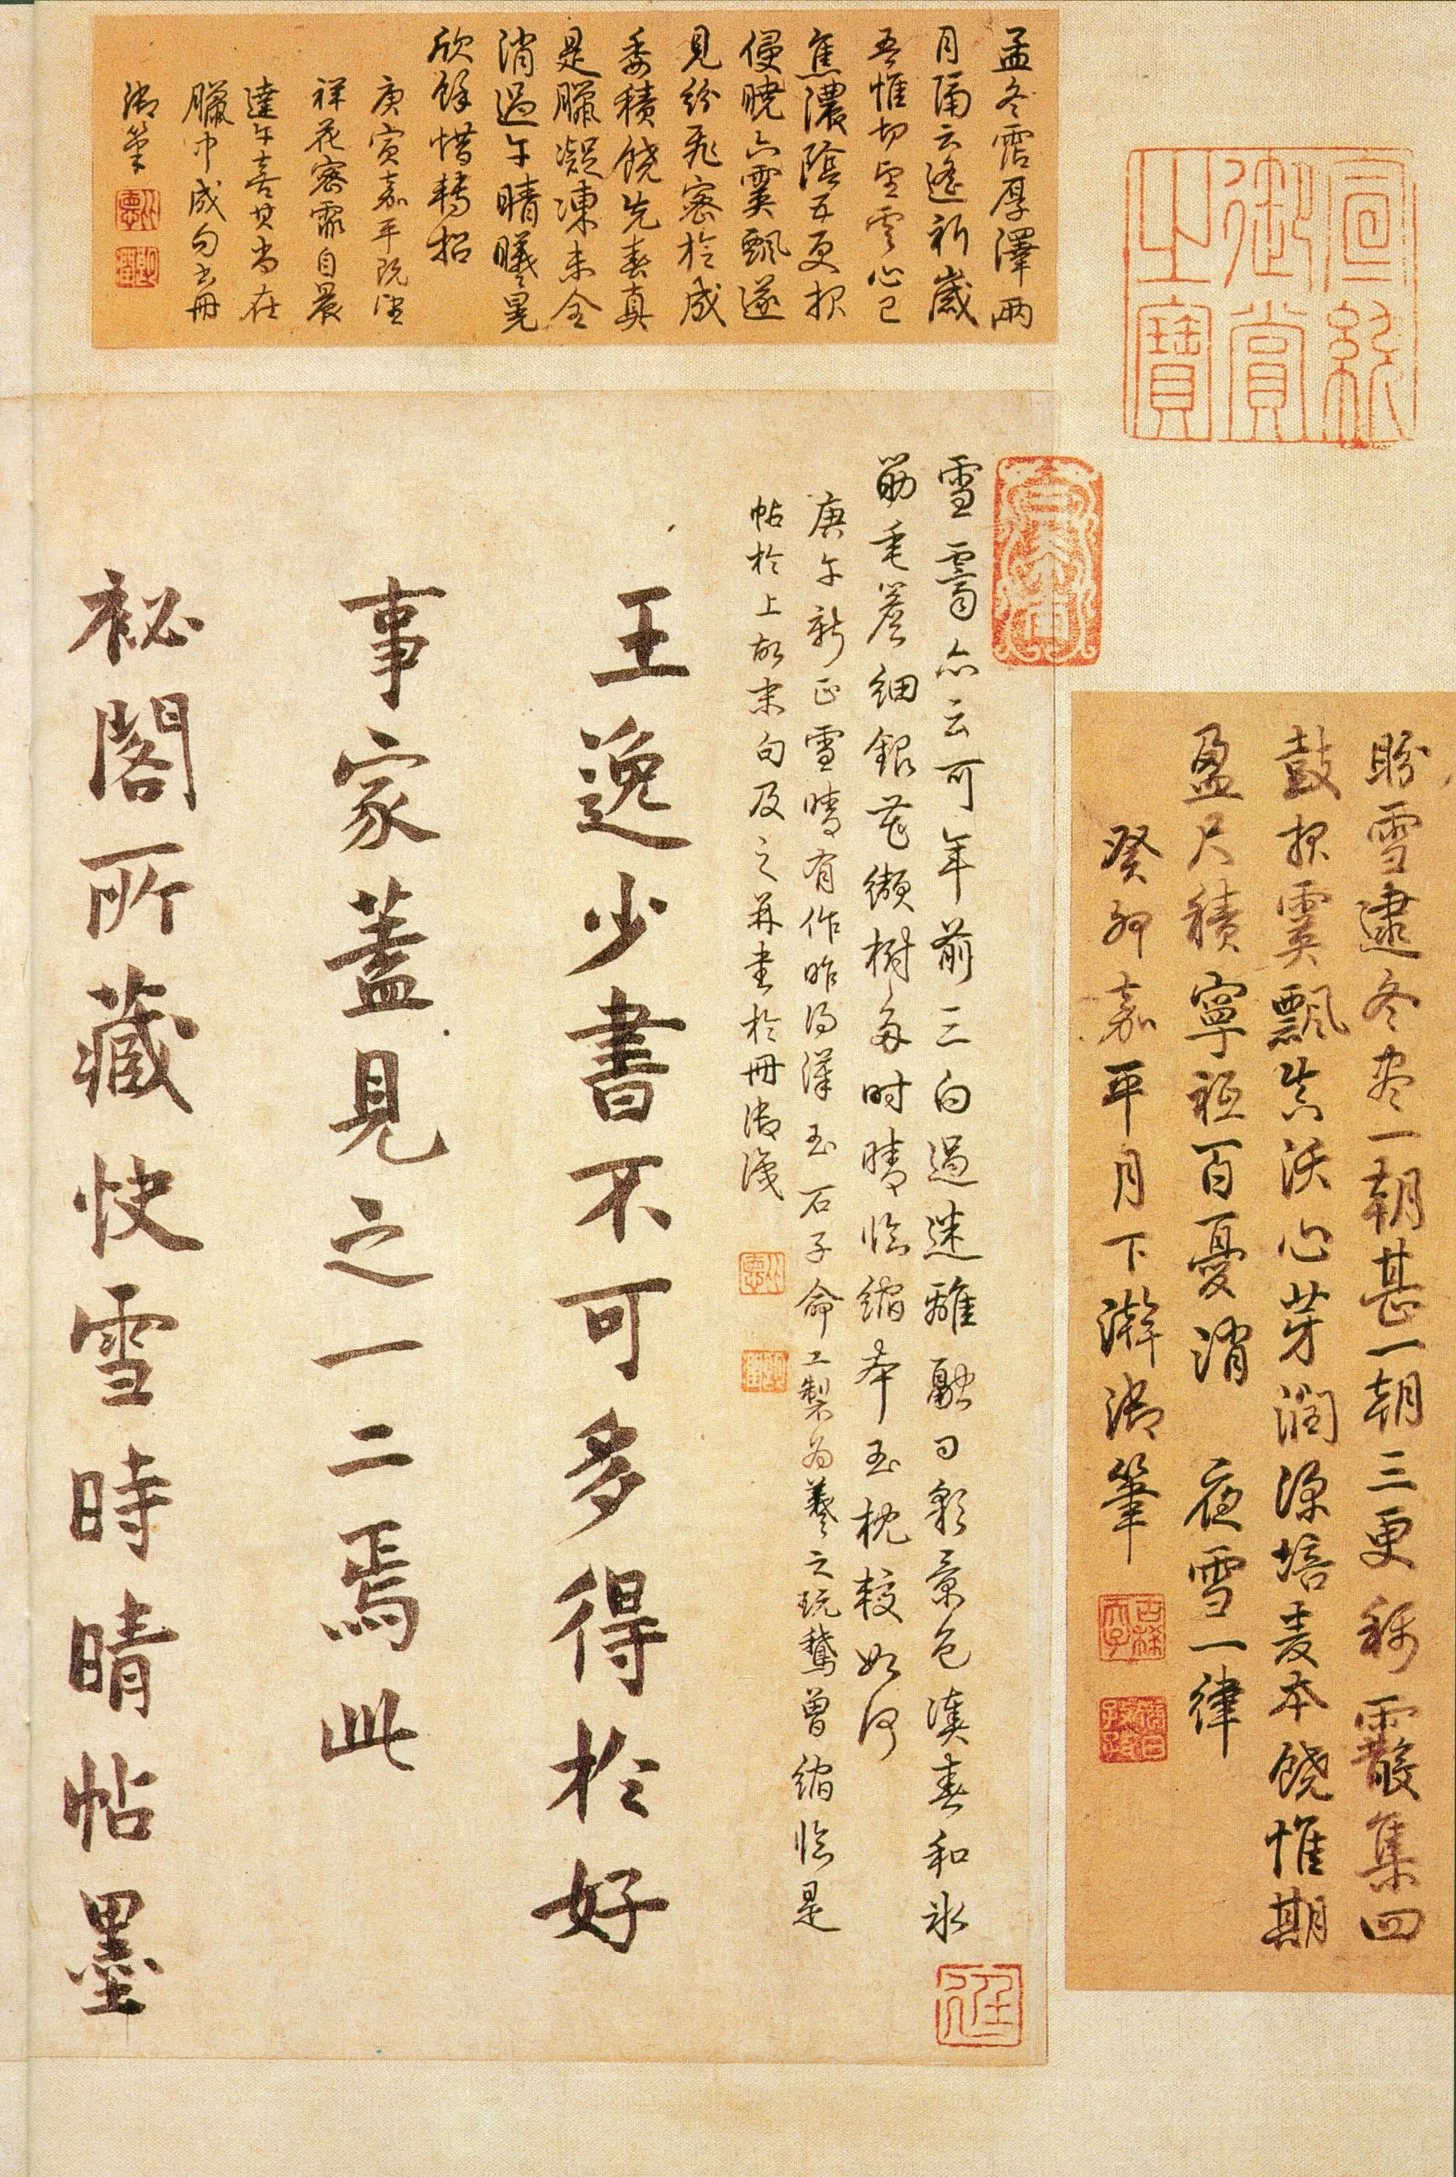 孟冬霑厚澤兩
月隔云遙祈歲
吾惟切望雲心已
焦濃陰五更報
侵曉六霙飄遂
見紛飛密於成
委積饒先春真
是臘凝凍未全
消過午晴曦晃
欣餘惜轉招
庚寅嘉平既望
祥花密霏自晨
達午喜其尚在
臘中成句書冊
御筆
宣統
御賞
之寶
盼雪逮冬杪一朝甚一朝三更稀霰集四
鼓報霙飄洪沃心芽潤深培麦本饒惟期
盈尺積寧祗百憂消 夜雪一律
癸卯嘉平月下澣御筆
雪霽亦云可年前三白過迷離融日彩景色湊春和氷
筯垂簷細銀花纈樹多時晴臨縮本玉枕較如何
庚午新正雪晴有作昨得漢玉石子命工製為羲之玩鵞曾縮臨是
帖於上故末句及之并書於冊御識
王逸少書不可多得於好
事家蓋見之一二焉此
祕閣所藏快雪時晴帖墨